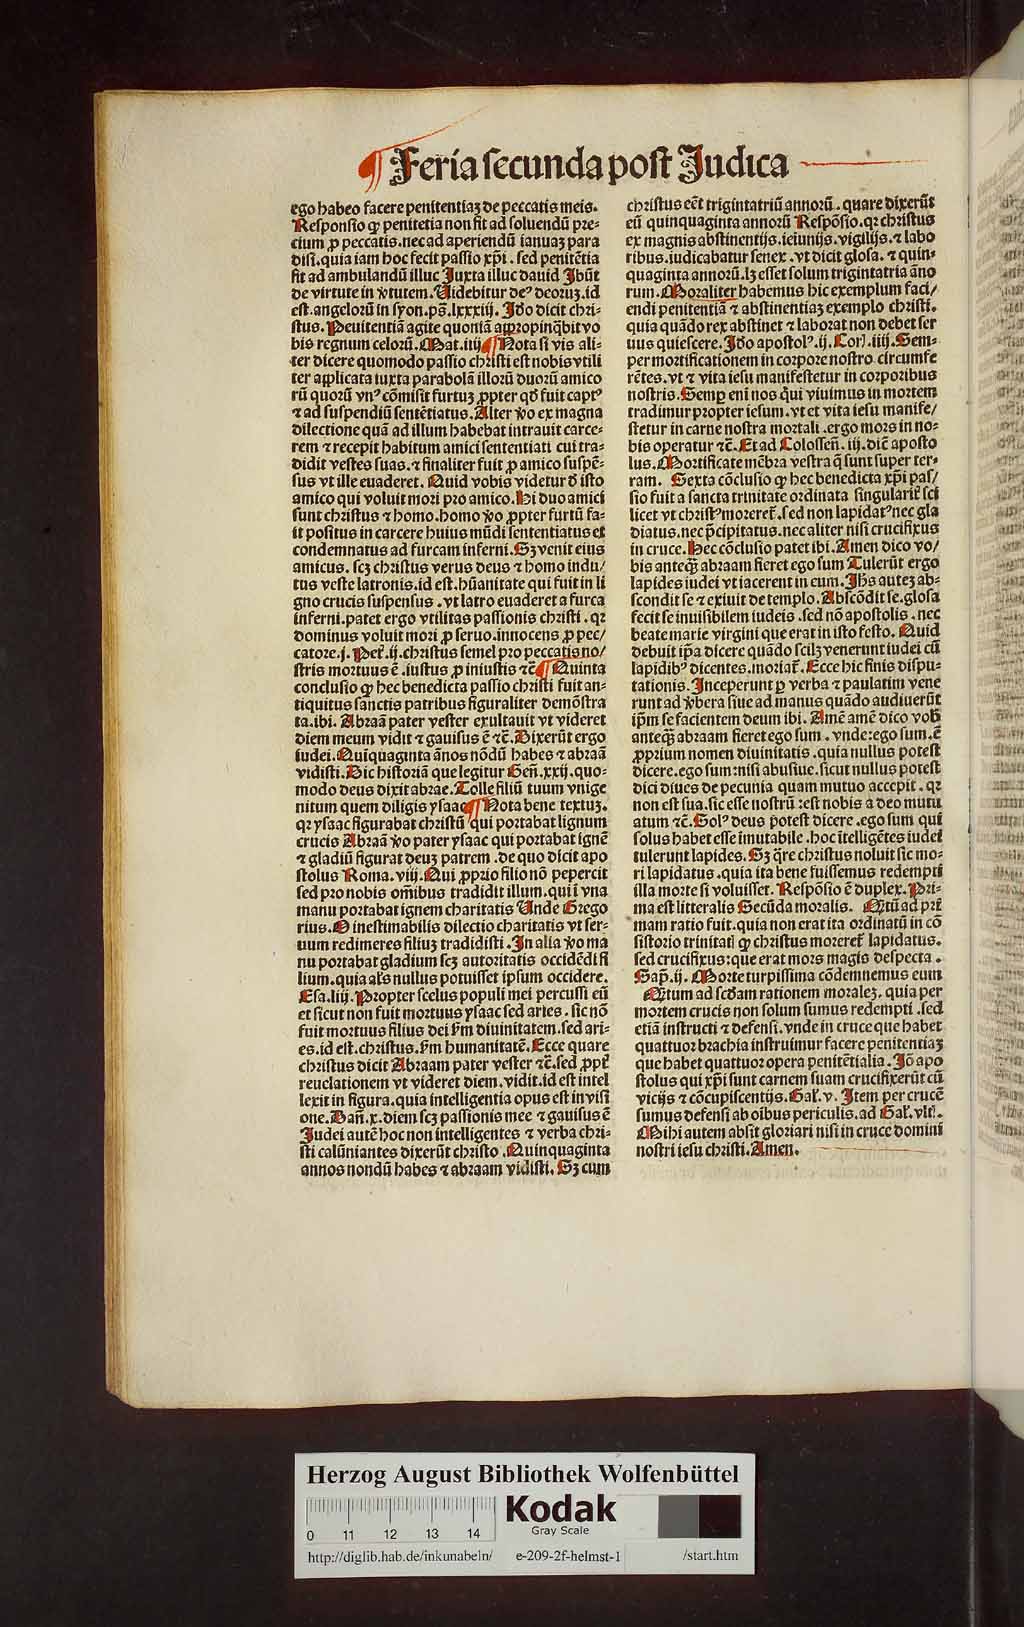 ¶ Feria secunda post Judica
ego habeo facere penitentiaꝫ de peccatis meis.
Responsio ꝙ penitētia non fit ad soluendū pre⸗
cium ꝓ peccatis. nec ad aperiendū ianuaꝫ para
disi. quia iam hoc fecit passio xp̄i. sed penitētia
fit ad ambulandū illuc Juxta illuc dauid Jbūt
de virtute in v̓tutem. Uidebitur deꝰ deoruꝫ. id
est. angelorū in syon. ps̄. lxxxiij. Jdo dicit chri⸗
stus. Peuitentiā agite quoniā appropinq̄bit vo
bis regnum celorū. Mat. iiij ¶ Nota si vis ali⸗
ter dicere quomodo passio christi est nobis vtili
ter applicata iuxta parabolā illorū duorū amico
rū quorū vnꝰ cōmisit furtuꝫ ꝓpter qd̄ fuit captꝰ
⁊ ad suspendiū sentētiatus. Alter v̓o ex magna
dilectione quā ad illum habebat intrauit carce⸗
rem ⁊ recepit habitum amici sententiati cui tra⸗
didit vestes suas. ⁊ finaliter fuit ꝓ amico suspē⸗
sus vt ille euaderet. Quid vobis videtur d̓ isto
amico qui voluit mori pro amico. Hi duo amici
sunt christus ⁊ homo. homo v̓o ꝓpter furtū fa⸗
it positus in carcere huius mūdi sententiatus et
condemnatus ad furcam inferni. Sꝫ venit eius
amicus. scꝫ christus verus deus ⁊ homo indu/
tus veste latronis. id est. hūanitate qui fuit in li
gno crucis suspensus. vt latro euaderet a furca
inferni. patet ergo vtilitas passionis christi. qꝛ
dominus voluit mori ꝓ seruo. innocens ꝓ pec/
catore. j. Pet̄. ij. christus semel pro peccatis no/
stris mortuus ē. iustus ꝓ iniustis ⁊c̄ ¶ Quinta
conclusio ꝙ hec benedicta passio christi fuit an⸗
tiquitus sanctis patribus figuraliter demōstra
ta. ibi. Abraā pater vester exultauit vt videret
diem meum vidit ⁊ gauisus ē ⁊c̄. Dixerūt ergo
iudei. Quīquaginta ānos nōdū habes ⁊ abraā
vidisti. Hic historiā que legitur Geñ. xxij. quo⸗
modo deus dixit abrae. Tolle filiū tuum vnige
nitum quem diligis ysaac ¶ Nota bene textuꝫ.
qꝛ ysaac figurabat christū qui portabat lignum
crucis Abraā v̓o pater ysaac qui portabat ignē
⁊ gladiū figurat deuꝫ patrem. de quo dicit apo
stolus Roma. viij. Qui ꝓprio filio nō pepercit
sed pro nobis om̄ibus tradidit illum. qui ī vna
manu portabat ignem charitatis Unde Grego
rius. O inestimabilis dilectio charitatis vt ser⸗
uum redimeres filiuꝫ tradidisti. Jn alia v̓o ma
nu portabat gladium scꝫ autoritatis occidēdi fi
lium. quia al̓s nullus potuisset ipsum occidere.
Esa. liij. Propter scelus populi mei percussi eū
et sicut non fuit mortuus ysaac sed aries. sic nō
fuit mortuus filius dei ẜm diuinitatem. sed ari⸗
es. id est. christus. ẜm humanitatē. Ecce quare
christus dicit Abraam pater vester ⁊c̄. sed ꝓpt̄
reuelationem vt videret diem. vidit. id est intel
lexit in figura. quia intelligentia opus est in visi
one. Dañ. x. diem scꝫ passionis mee ⁊ gauisus ē
Judei autē hoc non intelligentes ⁊ verba chri⸗
sti calūniantes dixerūt christo. Quinquaginta
annos nondū habes ⁊ abraam vidisti. Sꝫ cum
christus eēt trigintatriū annorū. quare dixerūt
eū quinquaginta annorū Respōsio. qꝛ christus
ex magnis abstinentijs. ieiunijs. vigilijs. ⁊ labo
ribus. iudicabatur senex. vt dicit glosa. ⁊ quin⸗
quaginta annorū. lꝫ esset solum trigintatria āno
rum. Moraliter habemus hic exemplum faci/
endi penitentiā ⁊ abstinentiaꝫ exemplo christi.
quia quādo rex abstinet ⁊ laborat non debet ser
uus quiescere. Jdo apostolꝰ. ij. Corī. iiij. Sem⸗
per mortificationem in corpore nostro circumfe
rētes. vt ⁊ vita iesu manifestetur in corporibus
nostris. Semꝑ eni nos qui viuimus in mortem
tradimur propter iesum. vt et vita iesu manife/
stetur in carne nostra mortali. ergo mors in no⸗
bis operatur ⁊c̄. Et ad Colosseñ. iij. dic̄ aposto
lus. Mortificate mēbra vestra q̄ sunt super ter⸗
ram. Sexta cōclusio ꝙ hec benedicta xp̄i pas/
sio fuit a sancta trinitate ordinata singularit̄ sci
licet vt christꝰ moreret̄. sed non lapidatꝰ nec gla
diatus. nec p̄cipitatus. nec aliter nisi crucifixus
in cruce. Hec cōclusio patet ibi. Amen dico vo/
bis anteq̄ꝫ abraam fieret ego sum Tulerūt ergo
lapides iudei vt iacerent in eum. Jhs̄ auteꝫ ab⸗
scondit se ⁊ exiuit de templo. Abscōdit se. glosa
fecit se inuisibilem iudeis. sed nō apostolis. nec
beate marie virgini que erat in isto festo. Quid
debuit ip̄a dicere quādo scilꝫ venerunt iudei cū
lapidibꝰ dicentes. moriat̄. Ecce hic finis dispu⸗
tationis. Jnceperunt ꝑ verba ⁊ paulatim vene
runt ad v̓bera siue ad manus quādo audiuerūt
ip̄m se facientem deum ibi. Amē amē dico vob̄
anteq̄ꝫ abraam fieret ego sum. vnde: ego sum. ē
ꝓprium nomen diuinitatis. quia nullus potest
dicere. ego sum: nisi abusiue. sicut nullus potest
dici diues de pecunia quam mutuo accepit. qꝛ
non est sua. sic esse nostrū: est nobis a deo mutu
atum ⁊c̄. Solꝰ deus potest dicere. ego sum qui
solus habet esse īmutabile. hoc ītelligētes iudei
tulerunt lapides. Sꝫ q̄re christus noluit sic mo⸗
ri lapidatus. quia ita bene fuissemus redempti
illa morte si voluisset. Respōsio ē duplex. Pri⸗
ma est litteralis Secūda moralis. Q̄ꝫtū ad pri⸗
mam ratio fuit. quia non erat ita ordinatū in cō
sistorio trinitatī ꝙ christus moreret̄ lapidatus.
sed crucifixus: que erat mors magis despecta.
Sap̄. ij. Morte turpissima cōdemnemus eum
Q̄ꝫtum ad scd̄am rationem moraleꝫ. quia per
mortem crucis non solum sumus redempti. sed
etiā instructi ⁊ defensi. vnde in cruce que habet
quattuor brachia instruimur facere penitentiaꝫ
que habet quattuor opera penitētialia. Jō apo
stolus qui xp̄i sunt carnem suam crucifixerūt cū
vicijs ⁊ cōcupiscentijs. Gal̄. v. Jtem per crucē
sumus defensi ab oībus periculis. ad Gal̄. vlt̄.
Mihi autem absit gloriari nisi in cruce domini
nostri iesu christi. Amen.
Herzog August Bibliothek Wolfenbüttel
0 11 12 13 14
Kodak
Gray Scale
http://diglib.hab.de/inkunabeln/ e-209-2f-helmst-1 /start.htm